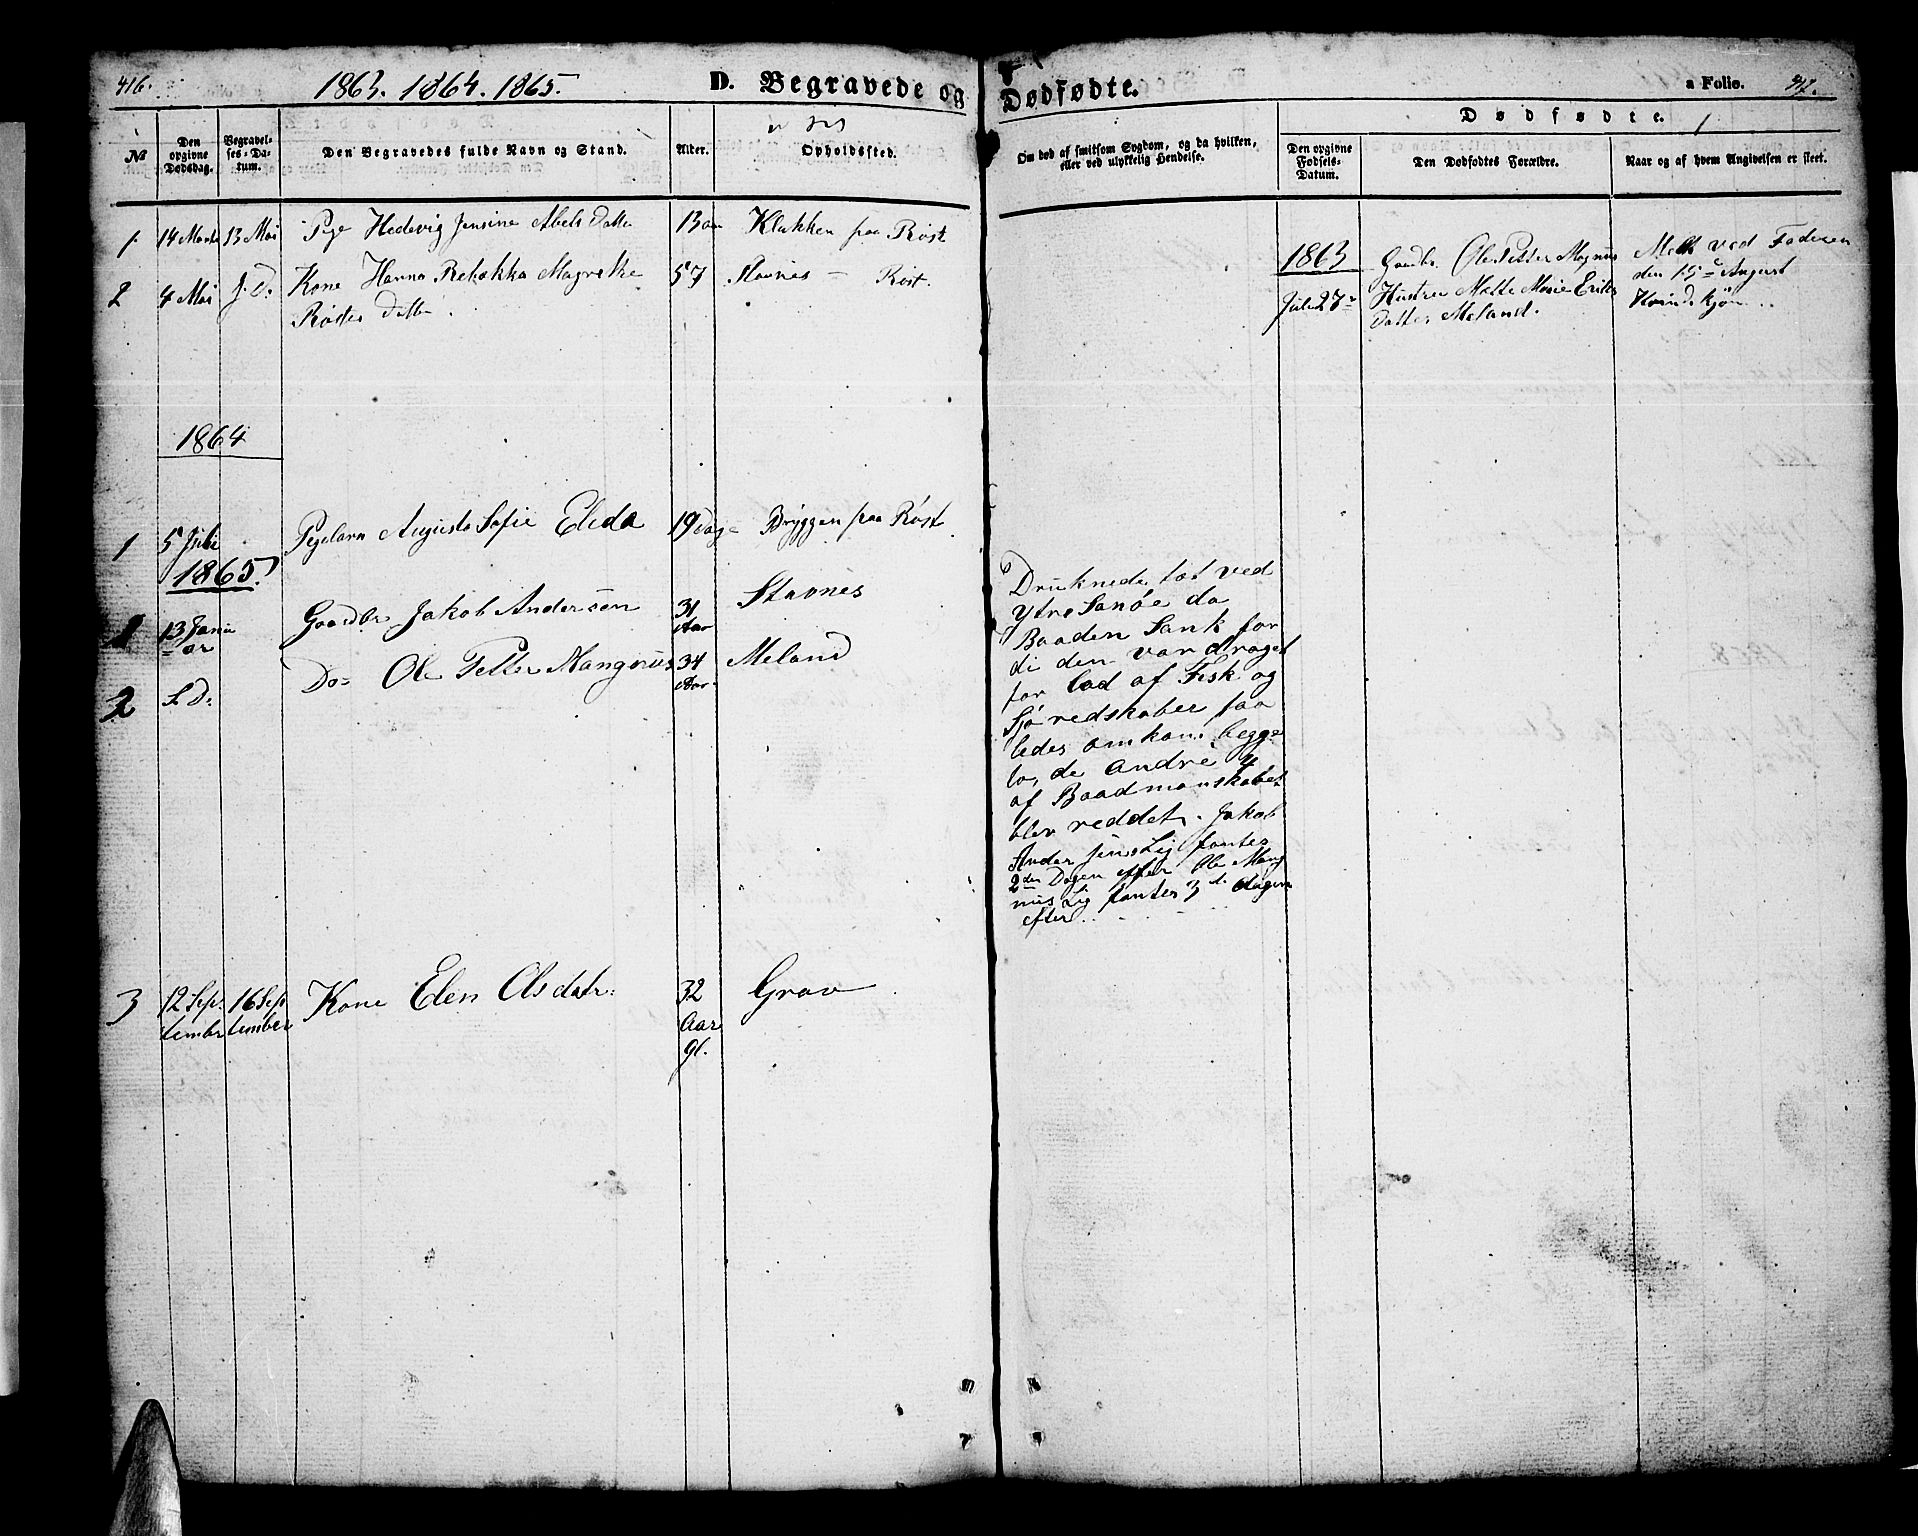 416.
1863. 1864. 1865.
D. Begravede og Dødfødte.
a Folio. 417.
Dødfødte.
№
Den opgivne Dødsdag.
Begravelses-Datum.
Den Begravedes fulde Navn og Stand.
Alder.
Opholdssted.
Om død af smitsom Sygdom, og da hvilken, eller ved ulykkelig Hendelse.
Den opgivne Fødsels-Datum.
Den Dødfødtes Forældre.
Naar og af hvem Angivelsen er skeet.
1 14 Marts 13 Mai Pige Hedevig Jensine Abels Datter 13 aar Klakken paa Røst
2 4 Mai J. D: Kone Hanna Rebekka Magrethe 57 Stavnes – Røst.
Røstes Datter.
1863 Gaardbr Ole Petter Magnus
Juli 27de Hustru Mette Marie Eriks
Datter Meland.
Meldt ved Faderen
den 15de August
Kvindekjøn..
1864
1 5 Juli Pigebarn Augusta Sofie Elida 19 Dag= Bryggen paa Røst
1865.
1 13 Janu
ar
Gaardbr Jakob Andersen 31
Aar
Stavnes
2 S. D: Do= Ole Petter Mangnus 34
Aar.
Meland
Druknede tæt ved
Ytre Sanøe da
Baaden Sank for
di den var draget
for lad af Fisk og
Sjøredskaber saa
ledes omkom begge
to, de andre 4
af Baadmanskabet
blev reddet. Jakob
Andersens Lig fantes
2den Dagen efter Ole Mang
nus Lig fantes 3de Dagen
efter...
3 12 Sep:
tember
16 Sep
tember
Kone Elen Olsdatr: 32
Aar
gl.
Grav